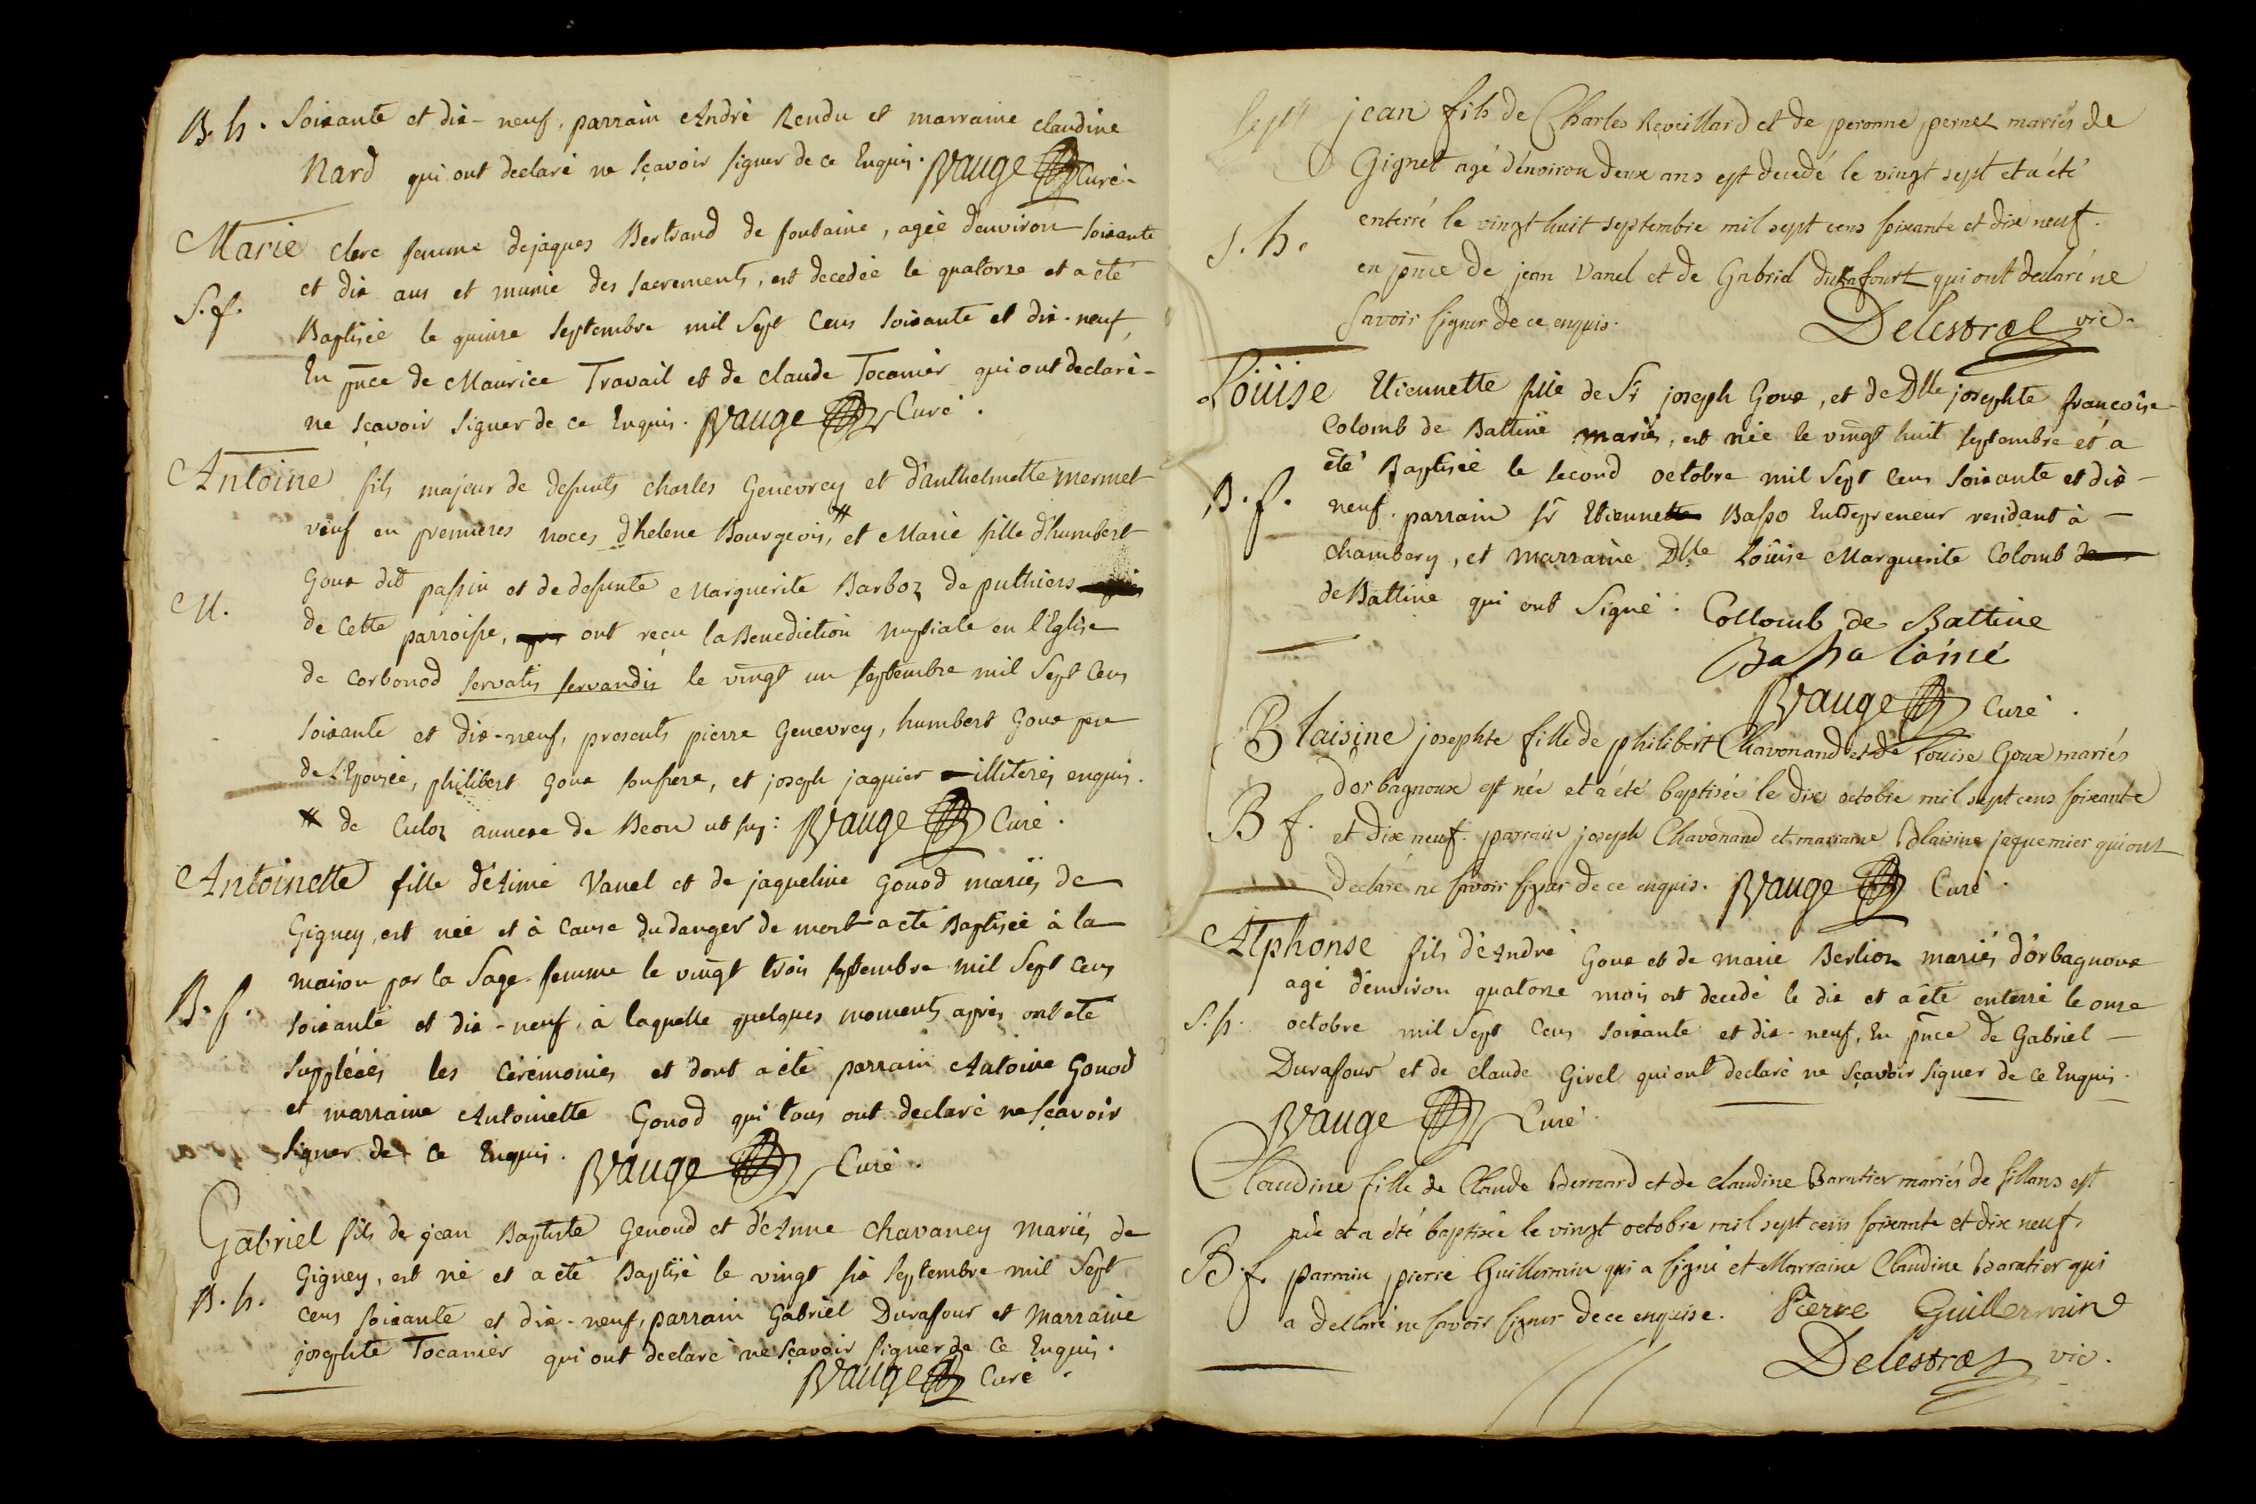 B. h. soixante et dix-neuf, parrain André Rendu et marraine claudine
Nard qui ont declaré ne sçavoir signer de ce Enquis. Vauge Curé
Marie clerc femme de jaques Bertrand de fontaine, agée d'environ soixante
et dix ans et munie des sacrements, est decedée le quatorze et a été
S. f.
Baptisée le quinze septembre mil sept cens soixante et dix-neuf
En pnce de Maurice Travail et de claude Tocanier qui ont declaré
ne sçavoir signer de ce Enquis. Vauge Curé.
Antoine fils majeur de defunts charles Genevrey et d'anthelmette mermet
veuf en premieres noces d'helene Bourgeois, # et Marie fille d'humbert
Goux dit passin et de defunte Marguerite Barboz de puthiers
M.
de cette parroisse, ont reçu la Benediction nuptiale en l'Eglise
de Corbonod servatis servandis le vingt un septembre mil sept cens
soixante et dix-neuf, presents pierre Genevrey, humbert Goux pere
de L'Epousée, philibert Goux son frere, et joseph jaquier illiterés enquis.
# de Culoz annexe de Beon ut sup: Vauge Curé.
Antoinette fille d'Aimé Vanel et de jaqueline Gonod mariés de
Gigney, est née et à cause du danger de mort a été Baptisée à la
B. f.
maison par la Sage-femme le vingt trois septembre mil sept cens
soixante et dix-neuf, à laquelle quelques moments après ont été
suppléées les cérémonies et dont a été parrain Antoine Gonod
et marraine Antoinette Gonod qui tous ont declaré ne sçavoir
signer de ce Enquis. Vauge Curé.
Gabriel fils de jean Baptiste Genoud et d'Anne chavaney mariés de
B. h.
Gigney, est né et a été Baptisé le vingt six septembre mil sept
cens soixante et dix-neuf, parrain Gabriel Durafour et Marraine
josephte Tocanier qui ont declaré ne sçavoir signer de ce Enquis.
Vauge Curé.
jean fils de Charles Reveillard et de peronne pernet mariés de
Gignet agé d'environ deux ans est decedé le vingt sept et a été
S. h.
enterré le vingt huit septembre mil sept cens soixante et dix neuf.
en pnce de jean Vanel et de Gabriel durafourt qui ont declaré ne
savoir signer de ce enquis. Delestral vic.
Loüise Etiennette fille de Sr joseph Goux, et de Dlle josephte françoise
Colomb de Battine mariés, est née le vingt huit septembre et a
été Baptisée le second octobre mil sept cens soixante et dix-
B. f.
neuf. parrain sr Etienne Basso Entrepreneur residant à
chambery, et marraine Dlle Loüise Marguerite Colomb
de Battine qui ont signé. Collomb de Battine
Basso
Vauge Curé.
Blaisine josephte fille de philibert Chavonand et de Louise Goux mariés
d'orbagnoux est née et a été baptisée le dix octobre mil sept cens soixante
B f.
et dix neuf. parrain joseph Chavonand et maraine Blaisine jaquemier qui ont
declaré ne savoir signer de ce enquis. Vauge Curé.
Alphonse fils d'André Goux et de marie Berlioz mariés d'orbagnoux
agé d'environ quatorze mois est decedé le dix et a été enterré le onze
S. h.
octobre mil sept cens soixante et dix-neuf, En pnce de Gabriel
Durafour et de claude Girel qui ont declaré ne sçavoir signer de ce Enquis.
Vauge Curé.
Claudine fille de Claude Bernard et de claudine Baratier mariés de sillans est
née et a été baptisée le vingt octobre mil sept cens soixante et dix neuf,
B. f.
parrain pierre Guillermin qui a signé et Marraine Claudine Baratier qui
a declaré ne savoir signer de ce enquise. Pierre Guillermin
Delestral vic.